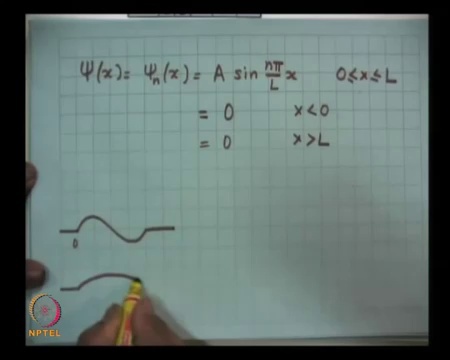 Ψ(x) = Ψn(x) = A sin nπ/L x 0≤x≤L
= 0 x<0
= 0 x>L
0
NPTEL